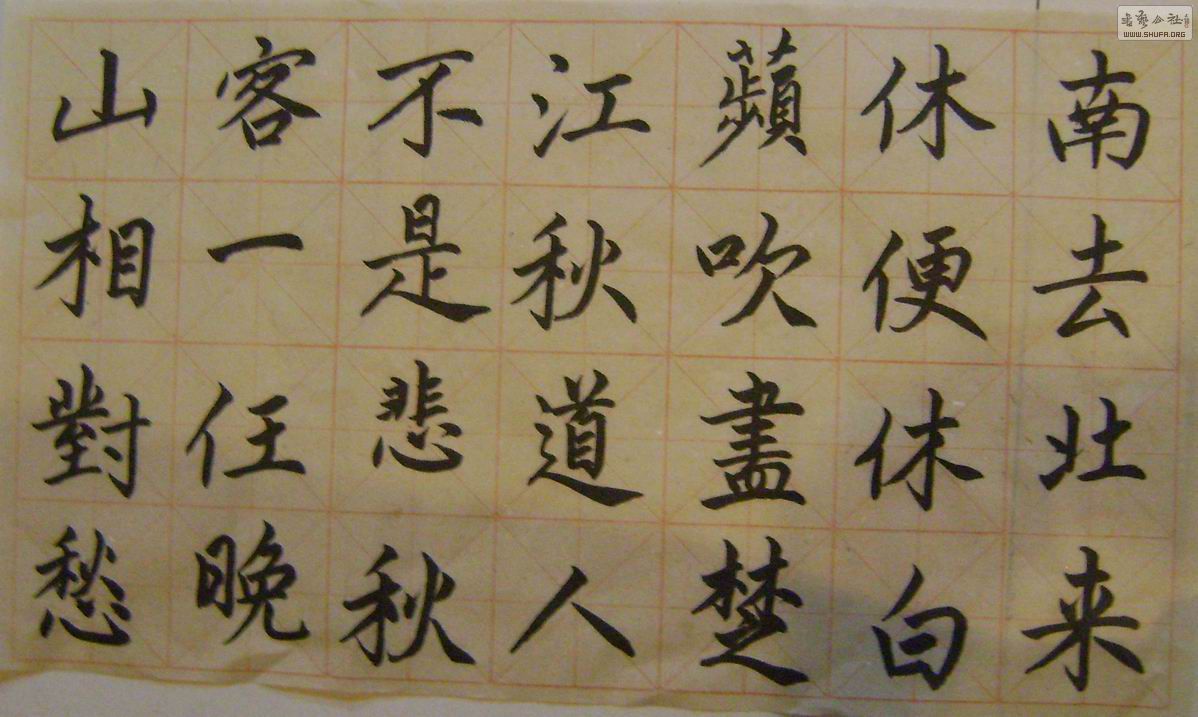 南去北来
休便休白
蘋吹盡楚
江秋道人
不是悲秋
客一任晚
山相對愁
WWW.SHUFA.ORG